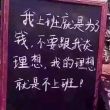 我上班就是为了
钱，不要跟我谈
理想，我的理想
就是不上班？